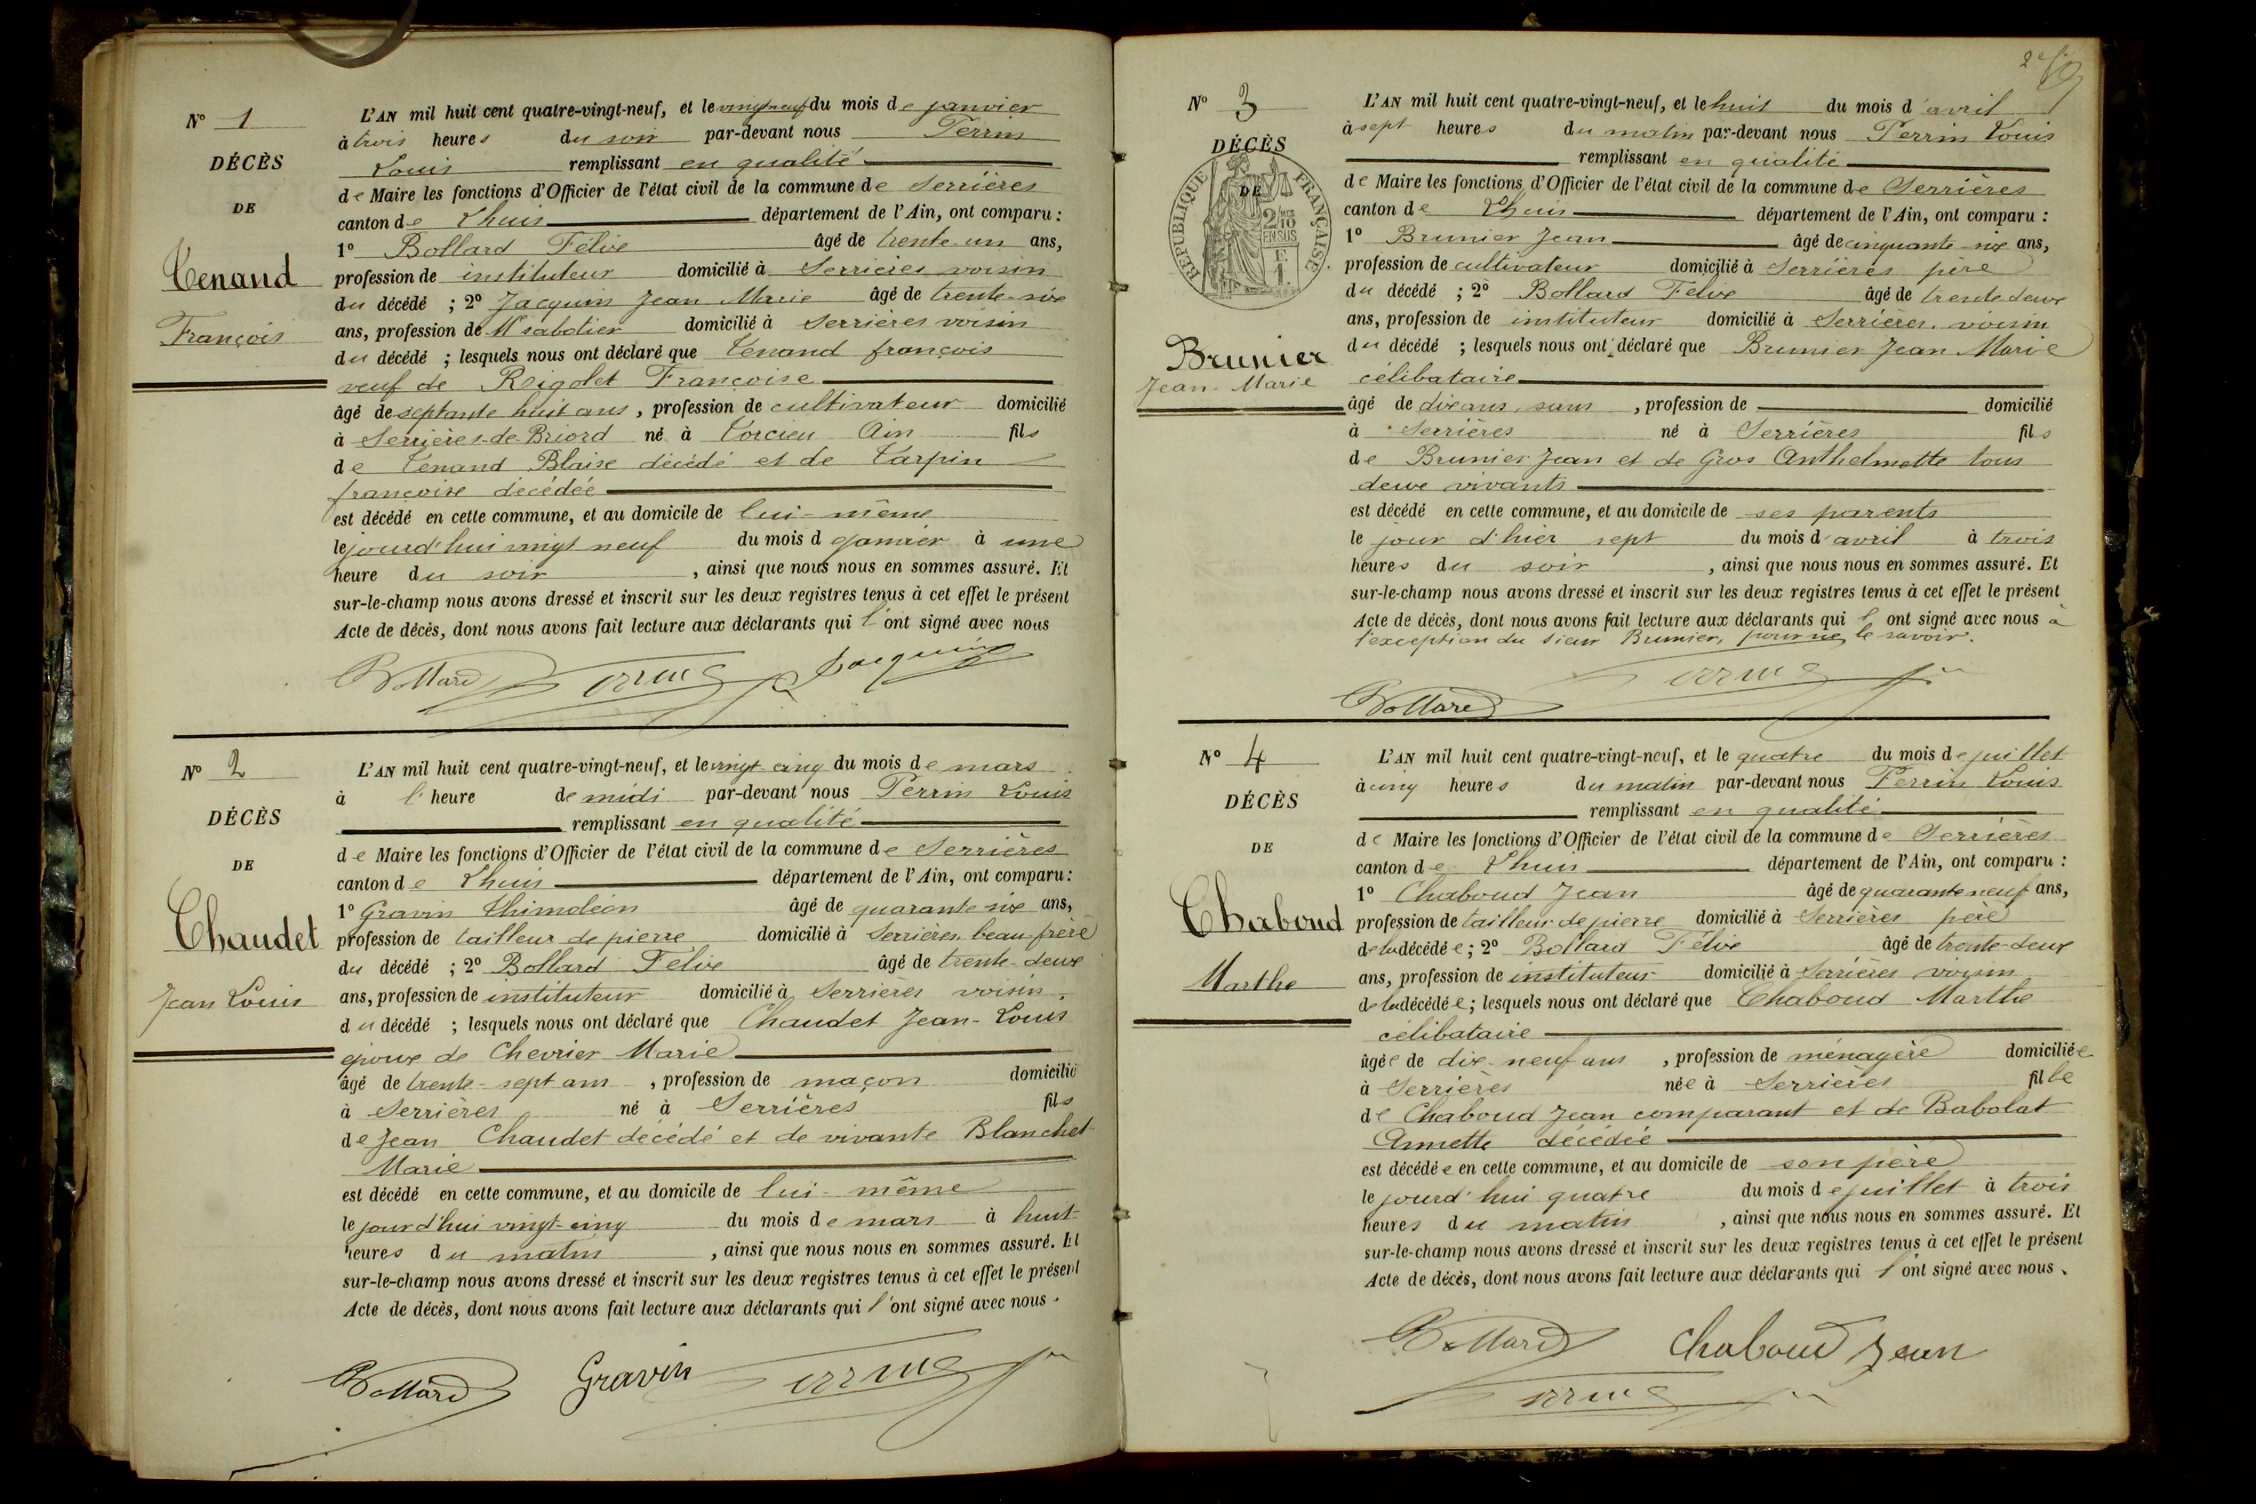 N° 1
DÉCÈS
DE
Tenand
François
L'AN mil huit cent quatre-vingt-neuf, et le vingt neuf du mois de janvier
à trois heures du soir par-devant nous Perrin
Louis remplissant en qualité
de Maire les fonctions d'Officier de l'état civil de la commune de Serrières
canton de Lhuis département de l'Ain, ont comparu :
1° Bollard Félix âgé de trente-un ans,
profession de instituteur domicilié à Serrières voisin
du décédé ; 2° Jacquin Jean Marie âgé de trente-six
ans, profession de Md sabotier domicilié à Serrières voisin
du décédé ; lesquels nous ont déclaré que Tenand françois
veuf de Rigolet Françoise
âgé de septante huit ans, profession de cultivateur domicilié
à Serrières-de-Briord né à Torcieu Ain fils
de Tenand Blaise décédé et de Tarpin
françoise décédée
est décédé en cette commune, et au domicile de lui-même
le jourd'hui vingt neuf du mois d janvier à une
heure du soir, ainsi que nous nous en sommes assuré. Et
sur-le-champ nous avons dressé et inscrit sur les deux registres tenus à cet effet le présent
Acte de décès, dont nous avons fait lecture aux déclarants qui l'ont signé avec nous
Bollard Perrin Jacquin
N° 2
DÉCÈS
DE
Chaudet
Jean Louis
L'AN mil huit cent quatre-vingt-neuf, et le vingt cinq du mois de mars
à l'heure de midi par-devant nous Perrin Louis
remplissant en qualité
de Maire les fonctions d'Officier de l'état civil de la commune de Serrières
canton de Lhuis département de l'Ain, ont comparu :
1° Gravin Thimoléon âgé de quarante six ans,
profession de tailleur de pierre domicilié à Serrières beau-frère
du décédé ; 2° Bollard Félix âgé de trente-deux
ans, profession de instituteur domicilié à Serrières voisin,
du décédé ; lesquels nous ont déclaré que Chaudet Jean-Louis
époux de Chevrier Marie
âgé de trente-sept ans, profession de maçon domicilié
à Serrières né à Serrières fils
de Jean Chaudet décédé et de vivante Blanchet
Marie
est décédé en cette commune, et au domicile de lui-même
le jourd'hui vingt-cinq du mois de mars à huit
heures du matin, ainsi que nous nous en sommes assuré. Et
sur-le-champ nous avons dressé et inscrit sur les deux registres tenus à cet effet le présent
Acte de décès, dont nous avons fait lecture aux déclarants qui l'ont signé avec nous.
Bollard Gravin Perrin
N° 3
DÉCÈS
DE
RÉPUBLIQUE FRANÇAISE
2/10
EN SUS
Brunier
Jean-Marie
L'AN mil huit cent quatre-vingt-neuf, et le huit du mois d'avril
à sept heures du matin par-devant nous Perrin Louis
remplissant en qualité
de Maire les fonctions d'Officier de l'état civil de la commune de Serrières
canton de Lhuis département de l'Ain, ont comparu :
1° Brunier Jean âgé de cinquante-six ans,
profession de cultivateur domicilié à Serrières père
du décédé ; 2° Bollard Félix âgé de trente deux
ans, profession de instituteur domicilié à Serrières. voisin
du décédé ; lesquels nous ont déclaré que Brunier Jean Marie
célibataire
âgé de dix ans, sans, profession de domicilié
à Serrières né à Serrières fils
de Brunier Jean et de Gros Anthelmette tous
deux vivants
est décédé en cette commune, et au domicile de ses parents
le jour d'hier sept du mois d'avril à trois
heures du soir, ainsi que nous nous en sommes assuré. Et
sur-le-champ nous avons dressé et inscrit sur les deux registres tenus à cet effet le présent
Acte de décès, dont nous avons fait lecture aux déclarants qui l'ont signé avec nous à
l'exception du sieur Brunier, pour ne le savoir.
Bollard Perrin
N° 4
DÉCÈS
DE
Chaboud
Marthe
L'AN mil huit cent quatre-vingt-neuf, et le quatre du mois de juillet
à cinq heures du matin par-devant nous Perrin Louis
remplissant en qualité
de Maire les fonctions d'Officier de l'état civil de la commune de Serrières
canton de Lhuis département de l'Ain, ont comparu :
1° Chaboud Jean âgé de quarante neuf ans,
profession de tailleur de pierre domicilié à Serrières père
de la décédée ; 2° Bollard Félix âgé de trente-deux
ans, profession de instituteur domicilié à Serrières voisin
de la décédée ; lesquels nous ont déclaré que Chaboud Marthe
célibataire
âgée de dix-neuf ans, profession de ménagère domiciliée
à Serrières née à Serrières fille
de Chaboud Jean comparant et de Babolat
Annette décédée
est décédée en cette commune, et au domicile de son père
le jourd'hui quatre du mois de juillet à trois
heures du matin, ainsi que nous nous en sommes assuré. Et
sur-le-champ nous avons dressé et inscrit sur les deux registres tenus à cet effet le présent
Acte de décès, dont nous avons fait lecture aux déclarants qui l'ont signé avec nous.
Bollard Chaboud Jean
Perrin